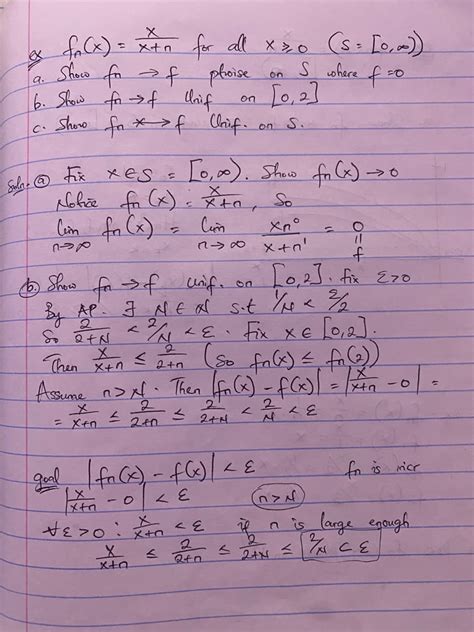 ex f_n(x) = x/(x+n) for all x ⩾ 0 (S = [0,∞))
a. Show f_n → f ptwise on S where f = 0
b. Show f_n → f Unif on [0,2]
c. Show f_n ↛ f Unif. on S.
Soln. (a) Fix x ∈ S = [0,∞). Show f_n(x) → 0
Notice f_n(x) = x/(x+n), So
lim n→∞ f_n(x) = lim n→∞ xn^0/(x+n^1) = 0 = f
(b) Show f_n → f Unif. on [0,2]. fix ε>0
By AP. ∃ N ∈ N s.t 1/N < ε/2
So 2/(2+N) < 2/N < ε. Fix x ∈ [0,2].
Then x/(x+n) ≤ 2/(2+n) (So f_n(x) ≤ f_n(2))
Assume n > N. Then |f_n(x) - f(x)| = |x/(x+n) - 0| =
= x/(x+n) ≤ 2/(2+n) ≤ 2/(2+N) < 2/N < ε
goal |f_n(x) - f(x)| < ε f_n is incr
|x/(x+n) - 0| < ε (n > N)
∀ε > 0 : x/(x+n) < ε if n is large enough
x/(x+n) ≤ 2/(2+n) ≤ 2/(2+N) ≤ 2/N < ε